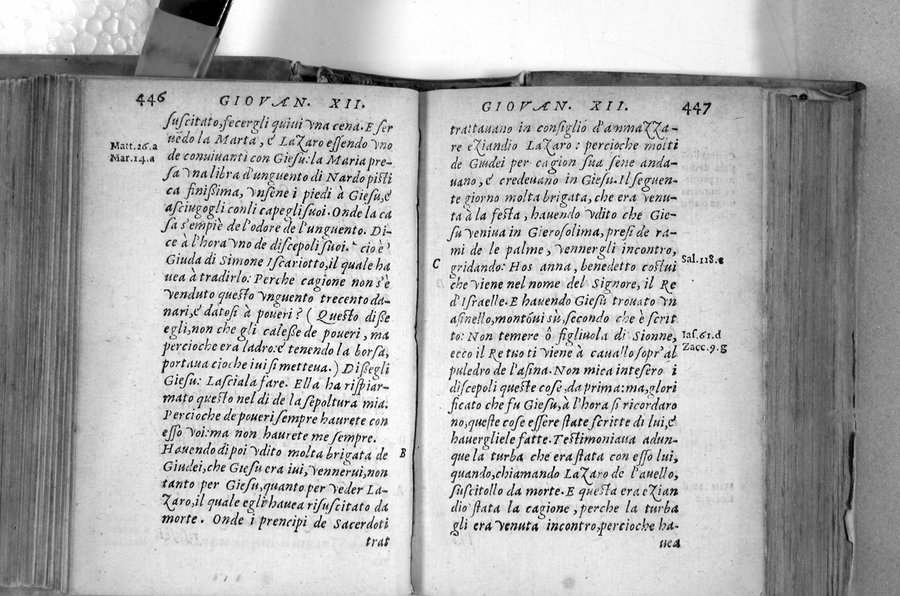 446
GIOVAN. XII.
suscitato, fecergli quivi vna cena. E ser
uēdo la Marta, e LaZaro essendo vno
Matt.26.a
Mar.14.a
de conuiuanti con Giesu: la Maria pre-
sa vna libra d'unguento di Nardo pisti
ca finißima, vnsene i piedi à Giesu, e
asciugogli con li capegli suoi. Onde la ca
sa s'empiè de l'odore de l'unguento. Di-
ce à l'hora vno de discepoli suoi, cio è
Giuda di Simone Iscariotto, il quale ha
uea à tradirlo: Perche cagione non s'è
venduto questo vnguento trecento da-
nari, e datosi à poueri? (Questo diße
egli, non che gli caleße de poueri, ma
percioche era ladro: e tenendo la borsa,
portaua cio che iui si metteua.) Dißegli
Giesu: Lasciala fare. Ella ha rispiar-
mato questo nel di de la sepoltura mia.
Percioche de poueri sempre haurete con
esso voi: ma non haurete me sempre.
Hauendo di poi vdito molta brigata de
B
Giudei, che Giesu era iui, vennerui, non
tanto per Giesu, quanto per veder La-
Zaro, il quale egli hauea risuscitato da
morte. Onde i prencipi de Sacerdoti
trat
GIOVAN. XII.
447
trattauano in consiglio d'ammaZZa-
re eZiandio LaZaro: percioche molti
de Giudei per cagion sua sene anda-
uano, e credeuano in Giesu. Il seguen-
te giorno molta brigata, che era venu-
ta à la festa, hauendo vdito che Gie-
su veniua in Gierosolima, presi de ra-
mi de le palme, vennergli incontro,
C
gridando: Hos anna, benedetto costui
Sal.118.e
che viene nel nome del Signore, il Re
d'Israelle. E hauendo Giesu trouato vn
asinello, montoui sù, secondo che è scrit
to: Non temere ô figliuola di Sionne,
Iaf.61.d
Zacc.9.g
ecco il Re tuo ti viene à cauallo sopr'al
puledro de l'asina. Non mica intesero i
discepoli queste cose, da prima: ma, glori
ficato che fu Giesu, à l'hora si ricordaro
no, queste cose essere state scritte di lui, e
hauergliele fatte. Testimoniaua adun-
que la turba che era stata con esso lui,
quando, chiamando LaZaro de l'auello,
suscitollo da morte. E questa era eZian
dio stata la cagione, perche la turba
gli era venuta incontro, percioche ha-
uea